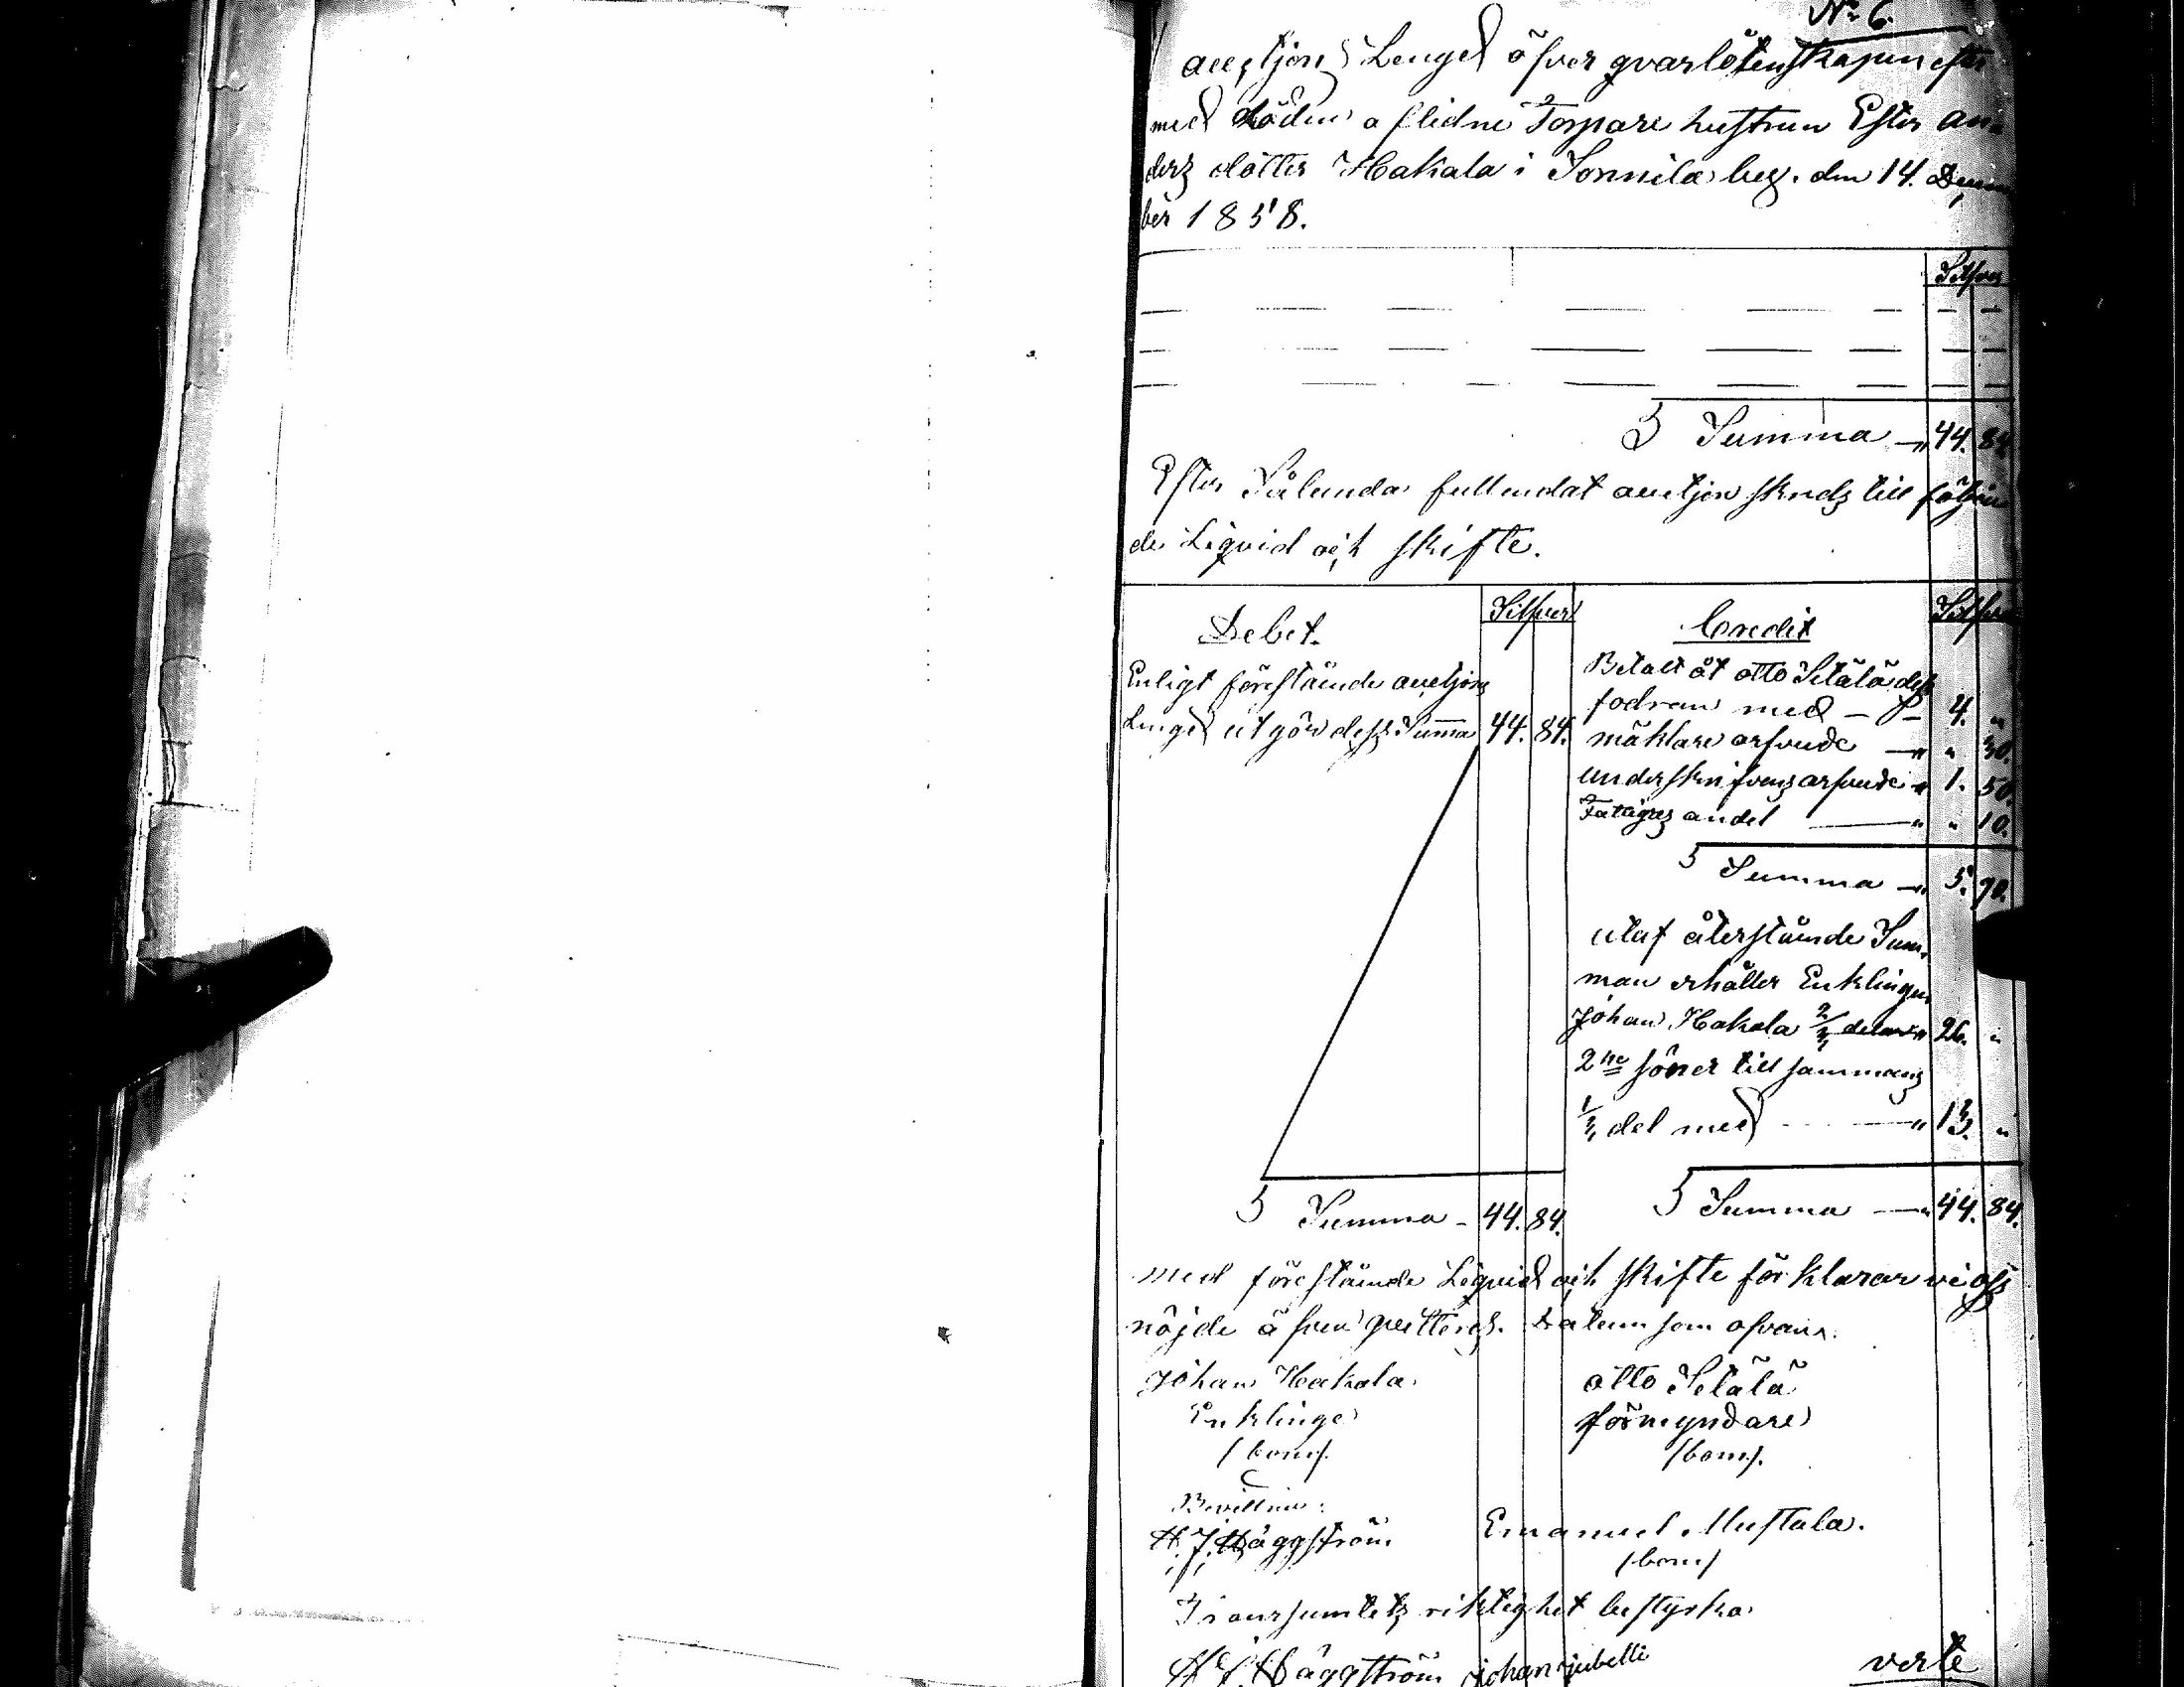 No 6.
auctjons Lengd öfver qvarlåtenskapen efter
med döden aflidne Torpare hustrun Ester An
ders dotter Hakala i Sonnila by. den 14. Decem
ber 1858.
Silfver
Summa — " 44. 84
Efter Sålunda fullendat auctjon skreds till följan
de Liqvid och skifte.
Debet. Silfver
Enligt förestående auctjons
Lengd utgör dess Summa 44. 84.
Summa - 44. 84.
Credit Silfver
Betalt åt otto Setälä dess
fodran med — 4. "
mäklare arfvode — " " 30.
underskrifvens arfvode " 1. 50.
Fattiges andel — " " 10.
Summa — " 5. 90.
utaf återstående Sum-
man erhåller Enklingen
Johan Hakala 2/3 delar " 26. "
2ne söner till sammans
1/3 del med — " 13. "
Summa — " 44. 84.
med förestående Liqvid och skifte förklarar vi oss
nöjde äfven qvitteres. Datum som ofvan.
Johan Hakala
Enklinge
(bom).
otto Setälä
förmyndare
(bom).
Bevittna:
H. J. Häggström
Emanuel Mustala.
(bom)
Transsumtets riktighet bestyrka
H. J. Häggström Johan
verte